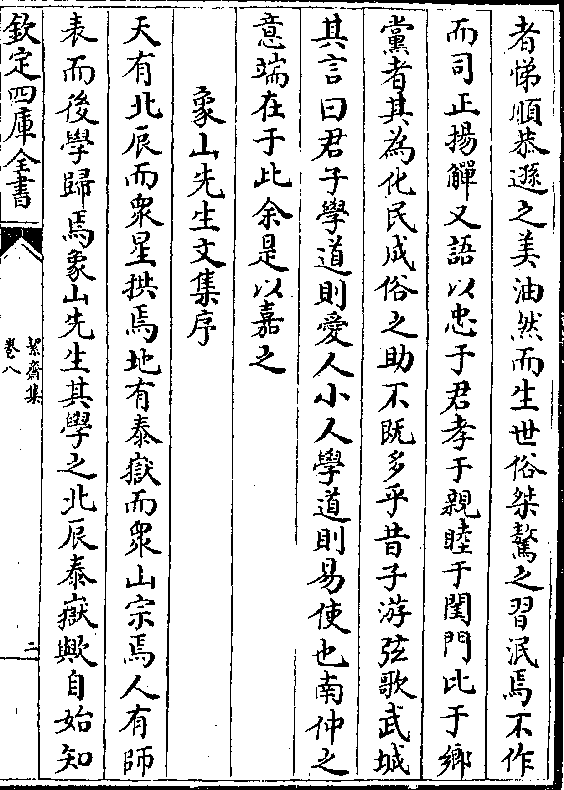 者悌順恭遜之美油然而生世俗桀驁之習泯焉不作
而司正揚觶又語以忠于君孝于親睦于閨門比于鄉
黨者其為化民成俗之助不既多乎昔子游弦歌武城
其言曰君子學道則愛人小人學道則易使也南仲之
意端在于此余是以嘉之
象山先生文集序
天有北辰而衆星拱焉地有泰嶽而衆山宗焉人有師
表而後學歸焉象山先生其學之北辰泰嶽歟自始知
欽定四庫全書
絜齋集
卷八
二